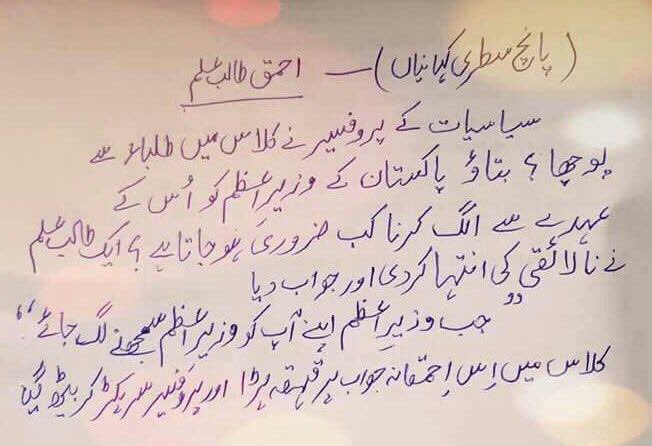 (پانچ سطری کہانیاں) — احمق طالب علم
سیاسیات کے پروفیسر نے کلاس میں طلباء سے
پوچھا؟ بتاؤ پاکستان کے وزیراعظم کو اُس کے
عہدے سے الگ کرنا کب ضروری ہو جاتا ہے؟ ایک طالب علم
نے نالائقی کی انتہا کر دی اور جواب دیا
"جب وزیرِاعظم اپنے آپ کو وزیراعظم سمجھنے لگ جائے"
کلاس میں اِس اِحمقانہ جواب پر قہقہہ پڑا اور پروفیسر سر پکڑ کر بیٹھ گیا